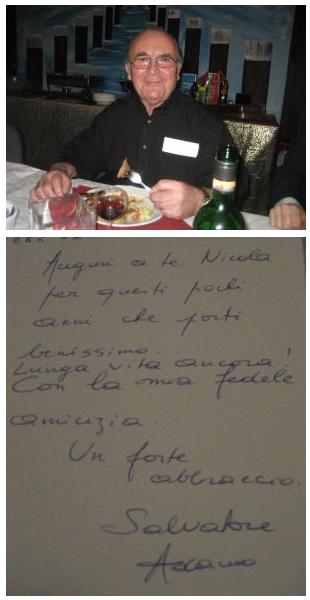 Auguri a te Nicola
per questi pochi
anni che porti
benissimo.
Lunga vita ancora!
Con la mia fedele
amicizia.
Un forte
abbraccio.
Salvatore
Adamo